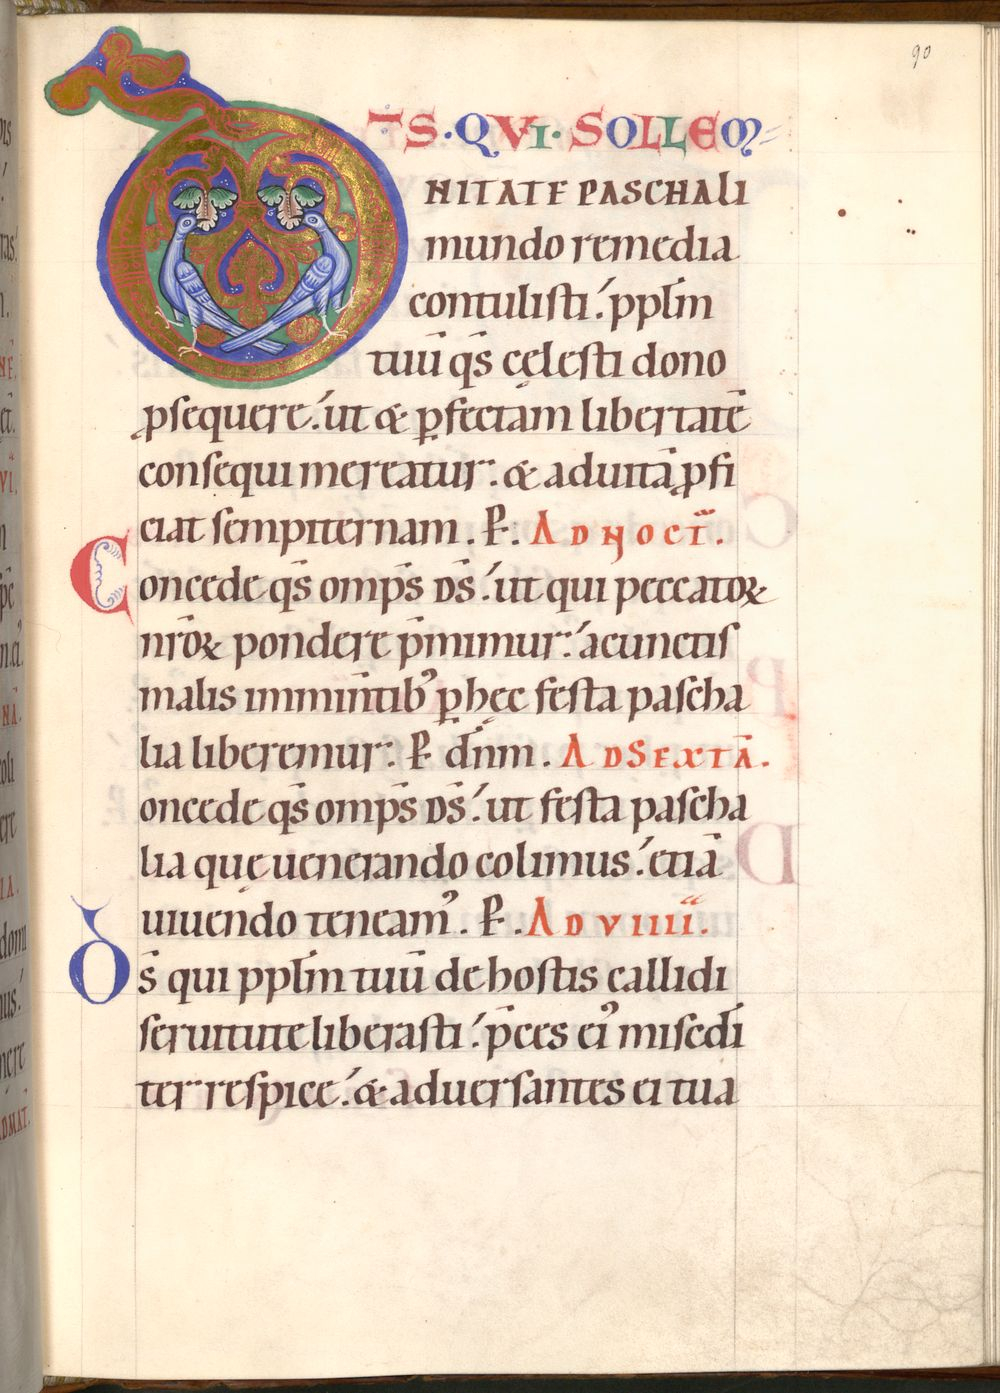 90
D̅S·QVI·SOLLEM=
NITATE PASCHALI
mundo remedia
contulisti: pplm̅
tuu̅ qs̅ cęlesti dono
ꝓsequere: ut & ꝑfectam libertate̅
consequi mereatur: & ad uita̅ ꝓfi
ciat sempiternam. P̲. AD NOCT̅.
Concede qs̅ omps̅ ds̅: ut qui peccatoꝝ
nr̅oꝝ pondere p̅mimur: a cunctis
malis immin̅tibꝰ ꝑ hęc festa pascha
lia liberemur: P̲ dn̅m. AD SEXTA̅.
oncede qs̅ omps̅ ds̅: ut festa pascha
lia quę uenerando colimus: etia̅
uiuendo teneamꝰ. P̲. AD VIIII.
Ds̅ qui pplm̅ tuu̅ de hostis callidi
seruitute liberasti: p̅ces eiꝰ miscd̅i
ter respice: & aduersantes ei tua